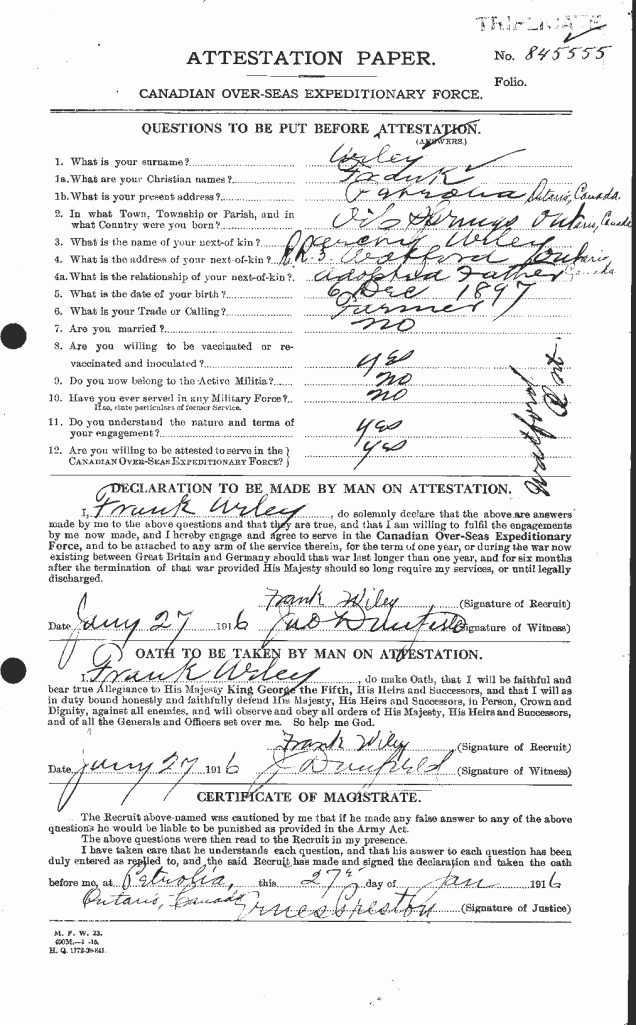 TRIPLICATE
ATTESTATION PAPER.
No. 845555
Folio.
CANADIAN OVER-SEAS EXPEDITIONARY FORCE.
QUESTIONS TO BE PUT BEFORE ATTESTATION.
(ANSWERS.)
1. What is your surname? Wiley
1a. What are your Christian names? Frank
1b. What is your present address? Petrolia Ontario, Canada.
2. In what Town, Township or Parish, and in
what Country were you born? Oil Springs Ontario, Canada
3. What is the name of your next-of-kin? Wiley
4. What is the address of your next-of-kin? R.R. 3 Watford Ontario,
4a. What is the relationship of your next-of-kin? adopted Father Canada
5. What is the date of your birth? 6 Dec 1897
6. What is your Trade or Calling? Farmer
7. Are you married? no
8. Are you willing to be vaccinated or re-
vaccinated and inoculated? yes
9. Do you now belong to the Active Militia? no
10. Have you ever served in any Military Force? no
If so, state particulars of former Service.
11. Do you understand the nature and terms of
your engagement? yes
12. Are you willing to be attested to serve in the
CANADIAN OVER-SEAS EXPEDITIONARY FORCE? yes
Watford Ont
DECLARATION TO BE MADE BY MAN ON ATTESTATION.
I, Frank Wiley, do solemnly declare that the above are answers
made by me to the above questions and that they are true, and that I am willing to fulfil the engagements
by me now made, and I hereby engage and agree to serve in the Canadian Over-Seas Expeditionary
Force, and to be attached to any arm of the service therein, for the term of one year, or during the war now
existing between Great Britain and Germany should that war last longer than one year, and for six months
after the termination of that war provided His Majesty should so long require my services, or until legally
discharged.
Frank Wiley (Signature of Recruit)
Date Jany 27 1916 (Signature of Witness)
OATH TO BE TAKEN BY MAN ON ATTESTATION.
I, Frank Wiley, do make Oath, that I will be faithful and
bear true Allegiance to His Majesty King George the Fifth, His Heirs and Successors, and that I will as
in duty bound honestly and faithfully defend His Majesty, His Heirs and Successors, in Person, Crown and
Dignity, against all enemies, and will observe and obey all orders of His Majesty, His Heirs and Successors,
and of all the Generals and Officers set over me. So help me God.
Frank Wiley (Signature of Recruit)
Date Jany 27 1916 (Signature of Witness)
CERTIFICATE OF MAGISTRATE.
The Recruit above-named was cautioned by me that if he made any false answer to any of the above
questions he would be liable to be punished as provided in the Army Act.
The above questions were then read to the Recruit in my presence.
I have taken care that he understands each question, and that his answer to each question has been
duly entered as replied to, and the said Recruit has made and signed the declaration and taken the oath
before me, at Petrolia, this 27th day of Jan 1916
Ontario, Canada (Signature of Justice)
M. F. W. 23.
H. Q. 1772-39-841.